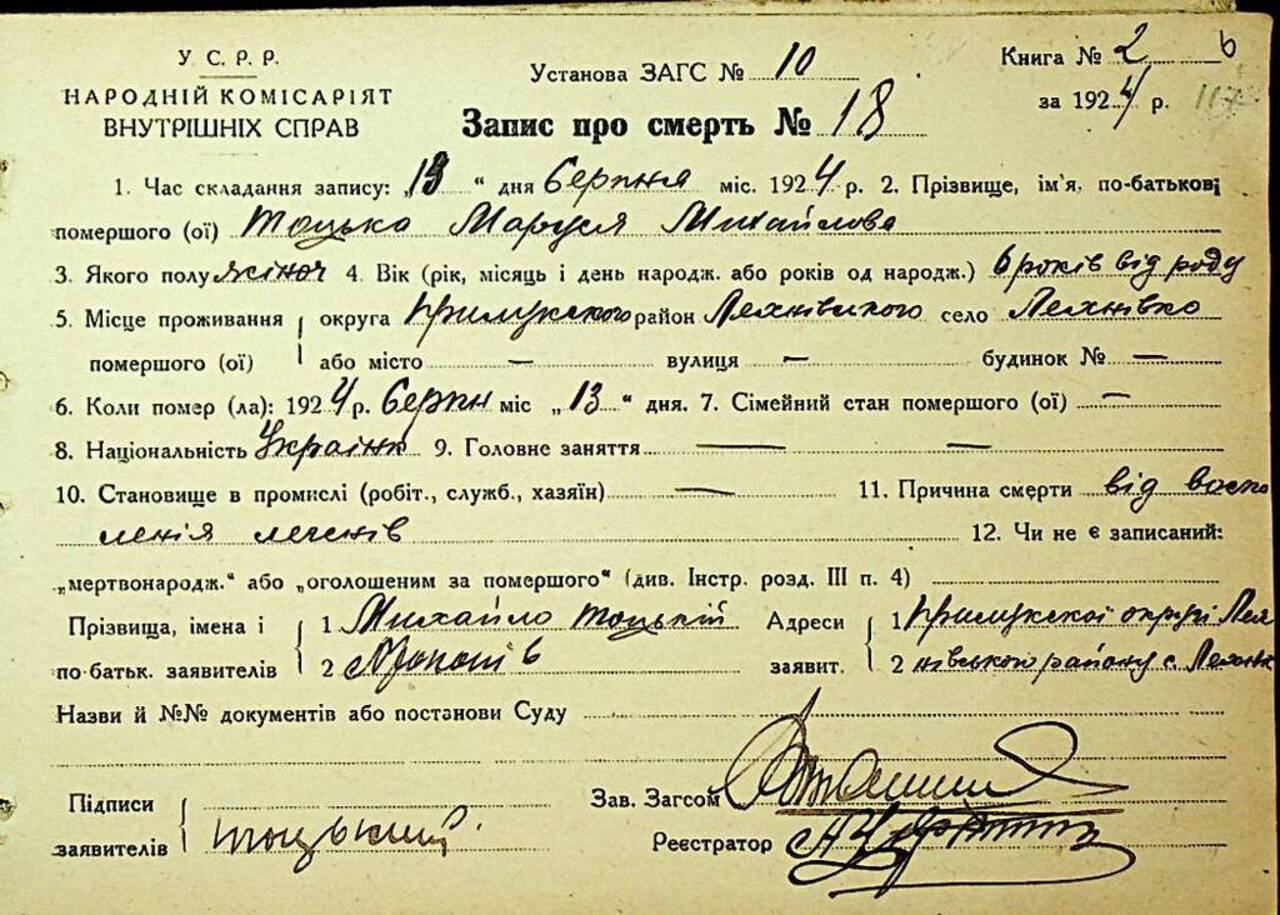 У. С. Р. Р.
НАРОДНІЙ КОМІСАРІЯТ
ВНУТРІШНІХ СПРАВ
Установа ЗАГС № 10
Запис про смерть № 18
Книга № 2 6
за 1924 р. 117
1. Час складання запису: „13“ дня Серпня міс. 1924 р. 2. Прізвище, ім'я, по-батькові
помершого (ої) Тоцька Маруся Михайлова
3. Якого полу жіноч 4. Вік (рік, місяць і день народж. або років од народж.) 6 років від роду
5. Місце проживання округа Прилукского район Ляхнівського село Ляхнівко
помершого (ої) або місто — вулиця — будинок № —
6. Коли помер (ла): 1924 р. Серпн міс „13“ дня. 7. Сімейний стан помершого (ої) —
8. Національність Українк 9. Головне заняття — —
10. Становище в промислі (робіт., служб., хазяїн) — 11. Причина смерти від воспо
ленія легенів 12. Чи не є записаний:
„мертвонародж.“ або „оголошеним за помершого“ (див. Інстр. розд. III п. 4)
Прізвища, імена і 1 Михайло Тоцькій Адреси 1 Прилукскої округі Лях
по-батьк. заявителів 2 заявит. 2 нівського району с. Ляхнів
Назви й №№ документів або постанови Суду
Підписи
заявителів Тоцький
Зав. Загсом
Реєстратор